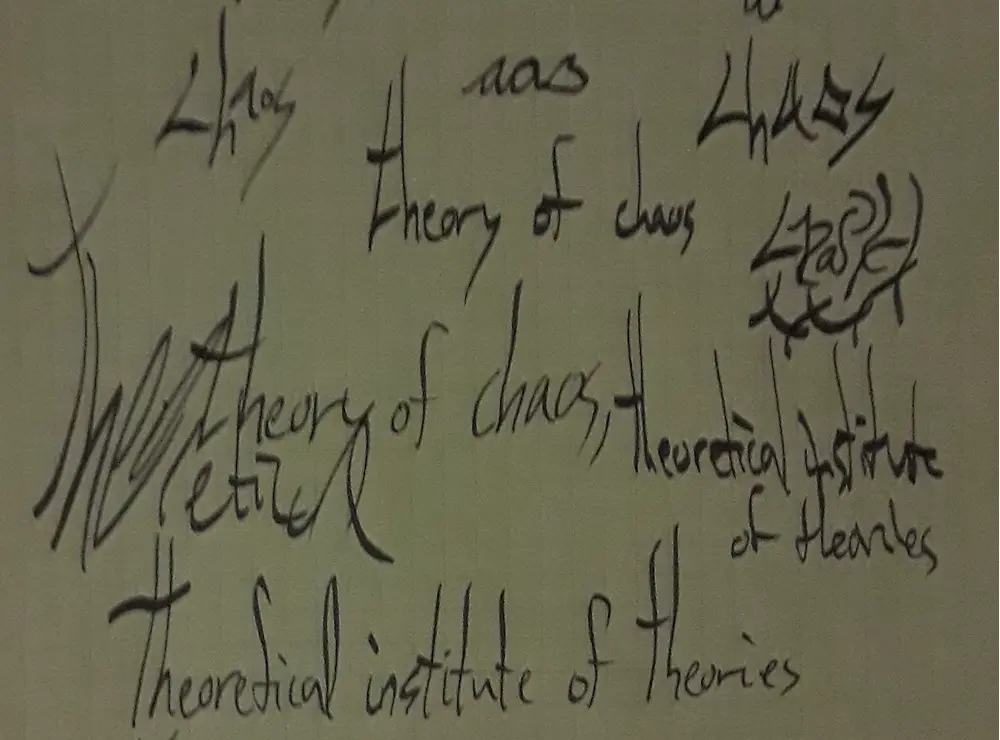 chaos aos chaos
theory of chaos
theory of chaos, theoretical institute
of theories
Theoretical institute of theories